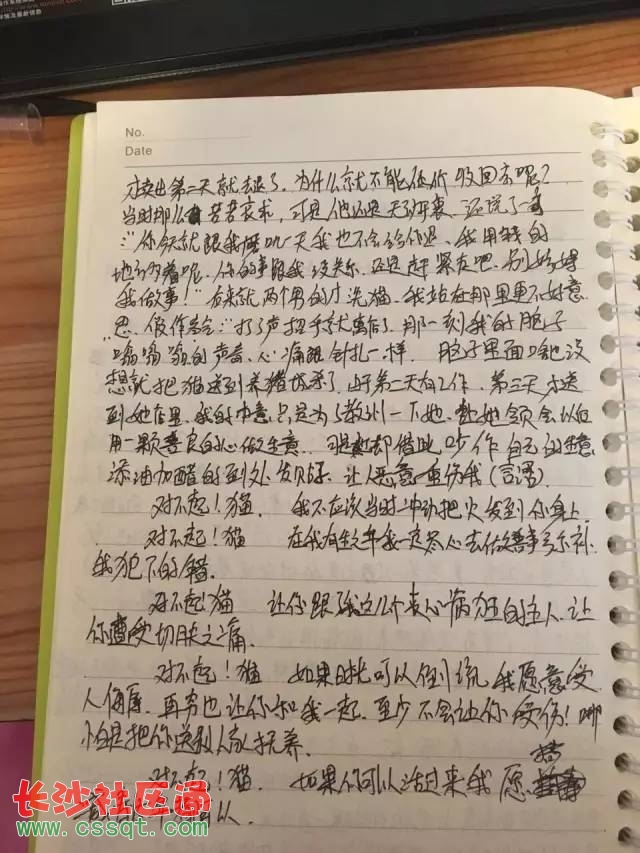 No.
Date
才卖出第二天就去退了，为什么就不能低价收回去呢？
当时那么苦苦哀求，可是他还是无动于衷，还说了一句
"你今天就跟我磨叽一天我也不会给你退，我用钱的
地方多着呢，你的事跟我没关系，还是赶紧走吧，别妨碍
我做事！"后来就两个男的才洗猫，我站在那里更不好意
思，假作若无 打了声招呼就离开了，那一刻我的脑子
嗡嗡嗡的声音，心痛跟针扎一样，脑子里面啥也没
想就把猫送到养猪场杀了，由于第二天有工作，第三天才送
到她店里，我的本意只是为了教训一下她，让她领会以后
用一颗善良的心做生意，可是她却借此炒作自己的生意
添油加醋的到处发帖，让人恶意重伤我（言语）
对不起！猫，我不应该当时冲动把火发到你身上，
对不起！猫 在我有生之年我一定尽心去做善事弥补
我犯下的错
对不起！猫 让你跟了我这个丧心病狂的主人，让
你遭受切肤之痛。
对不起！猫 如果时光可以倒流，我愿意受
人侮辱，再穷也让你和我一起，至少不会让你受伤！哪
怕是把你送别人家抚养。
对不起！猫，如果你可以活过来我愿
长沙社区通
www.cssqt.com